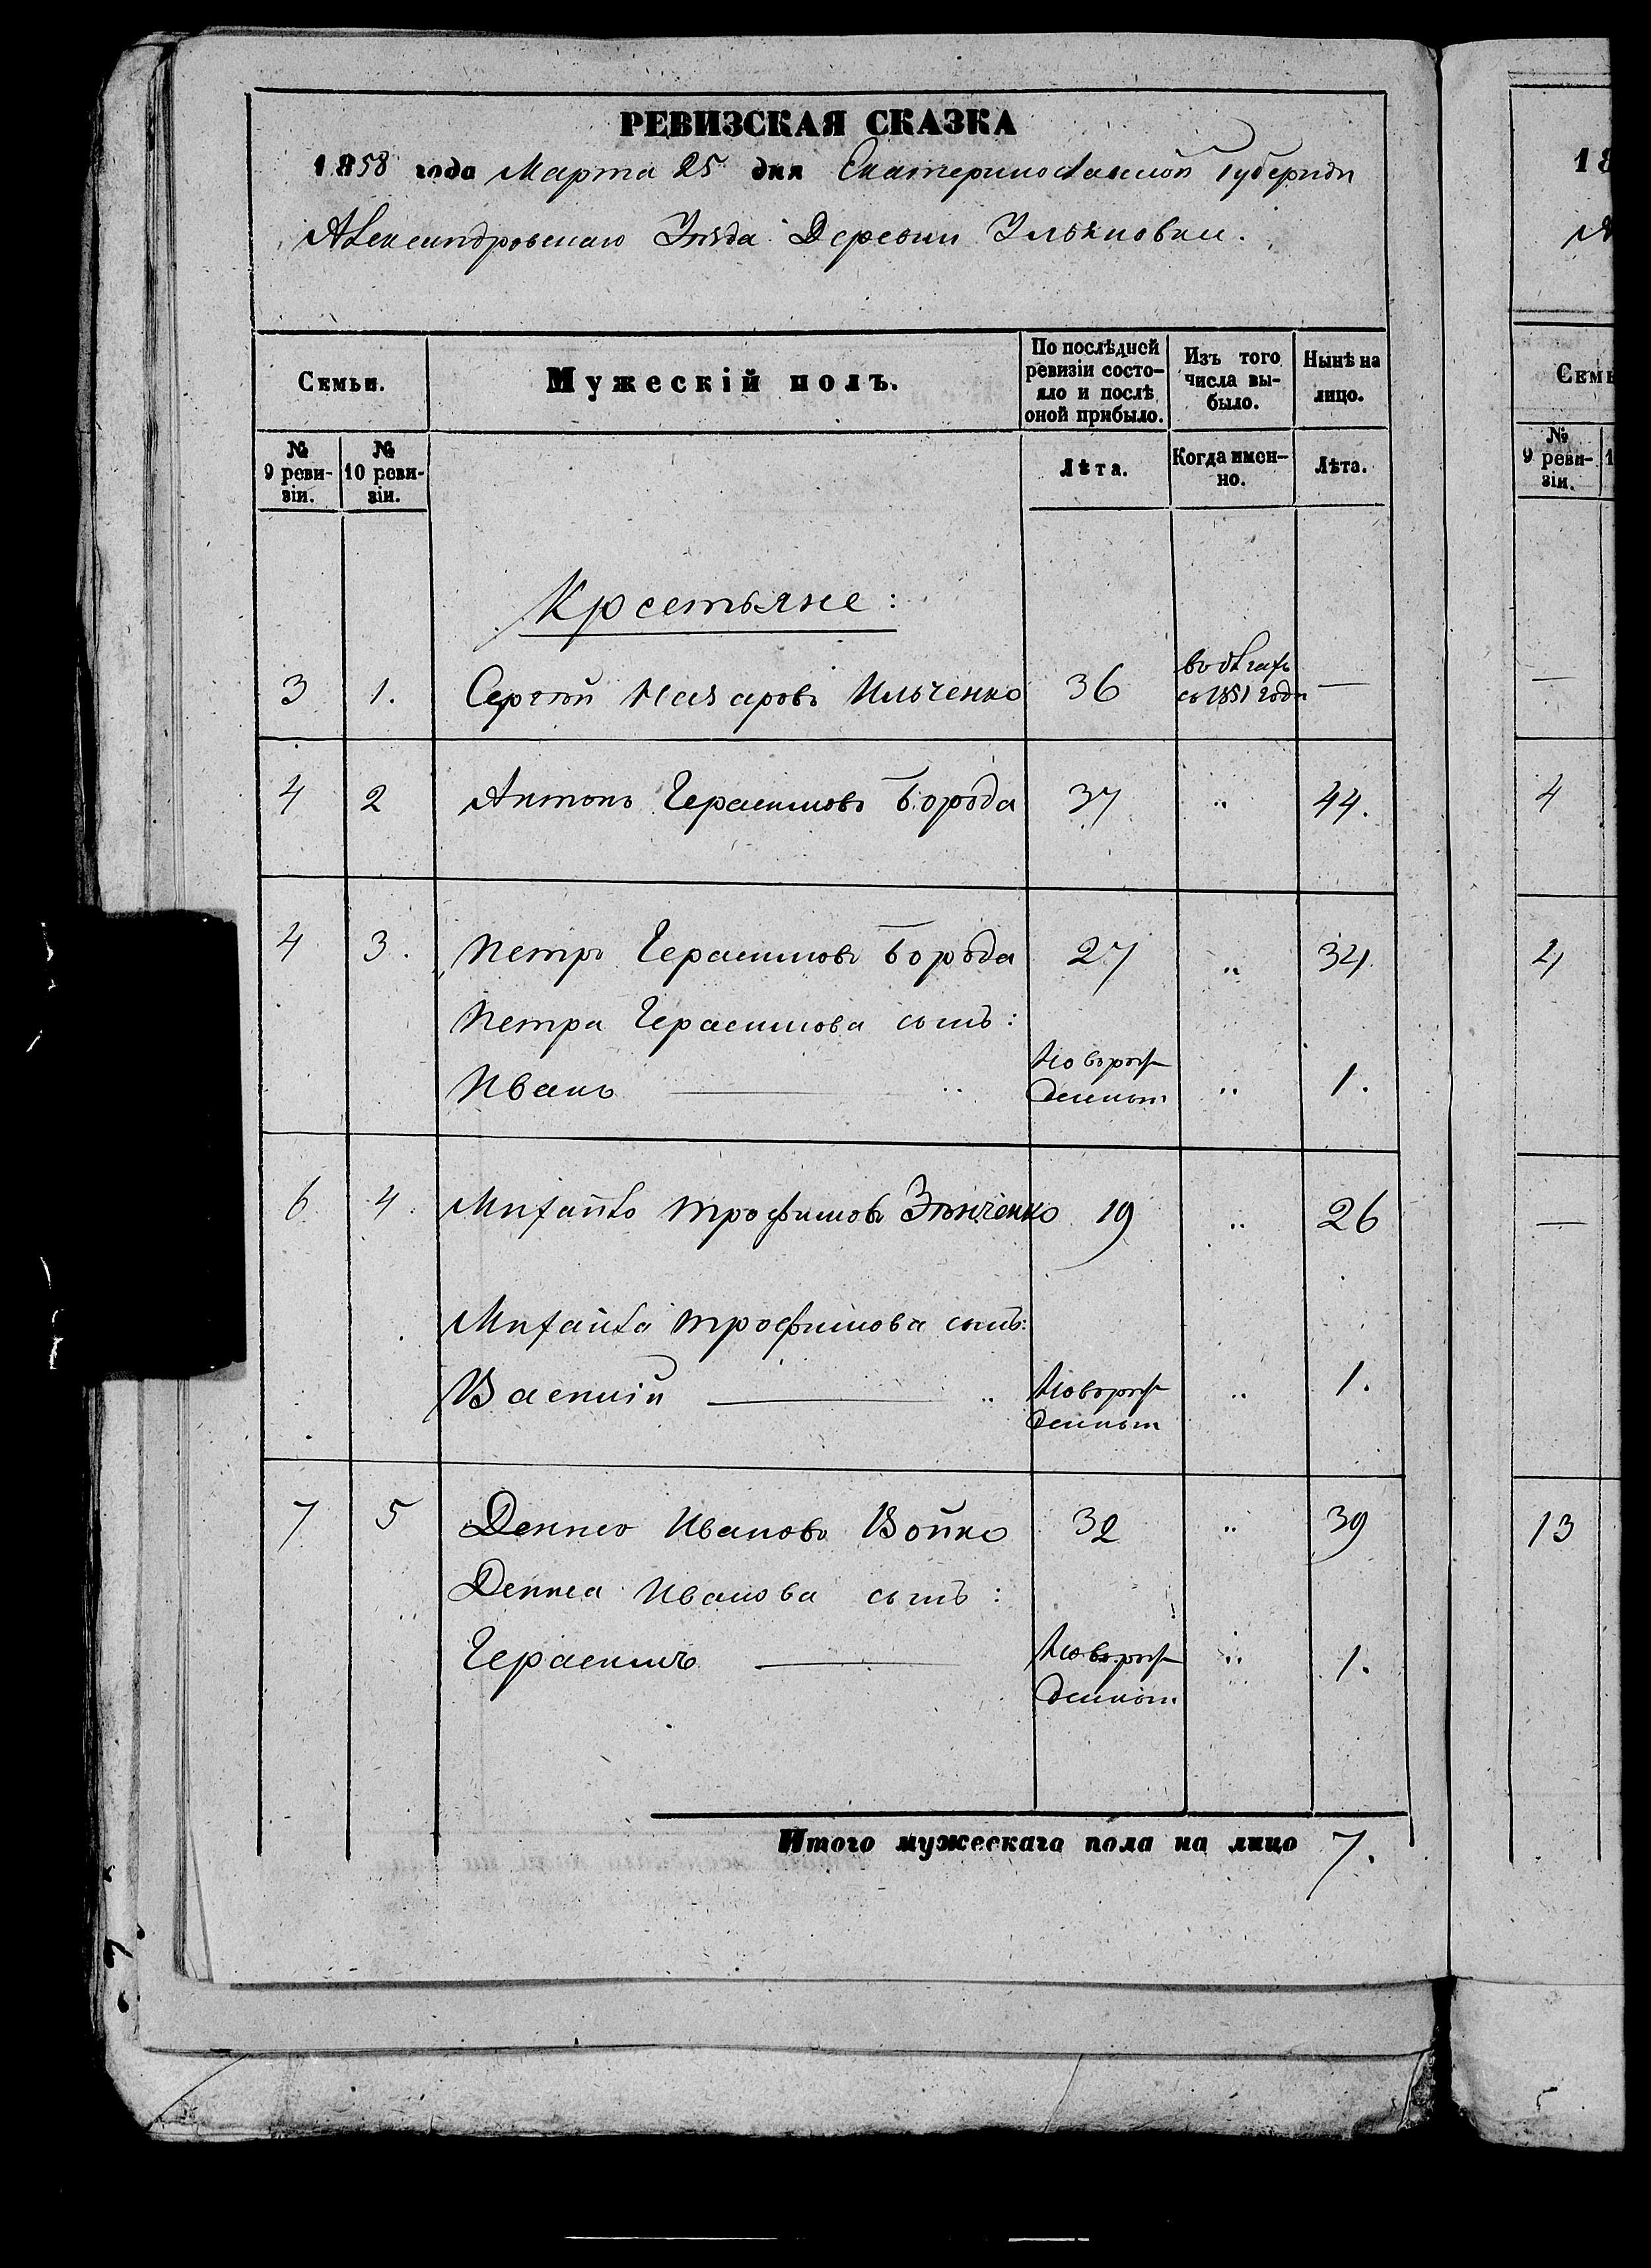 РЕВИЗСКАЯ СКАЗКА
1858 года Марта 25 дня Екатеринославской Губерніи
Александровскаго Уѣзда Деревни Ульяновки.
Семьи.
Мужескій полъ.
По послѣдней ревизіи состо-
яло и послѣ
оной прибыло.
Изъ того
числа вы-
было.
Нынѣ на
лицо.
№
9 реви-
зіи.
№
10 реви-
зіи.
Лѣта.
Когда имен-
но.
Лѣта.
Крестьяне:
3 1. Сергѣй Назаровъ Ильченко 36 въ бѣгахъ съ 1851 года —
4 2 Антонъ Герасимовъ Борода 37 " 44.
4 3. Петръ Герасимовъ Борода 27 " 34
Петра Герасимова сынъ:
Иванъ — " Новорож-
денный " 1.
6 4. Михайло Трофимовъ Зѣнченко 19 " 26
Михайла Трофимова сынъ:
Василій — " Новорож-
денный " 1.
7 5 Денисъ Ивановъ Бойко 32 " 39
Дениса Иванова сынъ:
Герасимъ — Новорож-
денный " 1.
Итого мужескаго пола на лицо 7.
18
А
Семь
№
9 реви-
зіи.
1
—
4
4
—
13